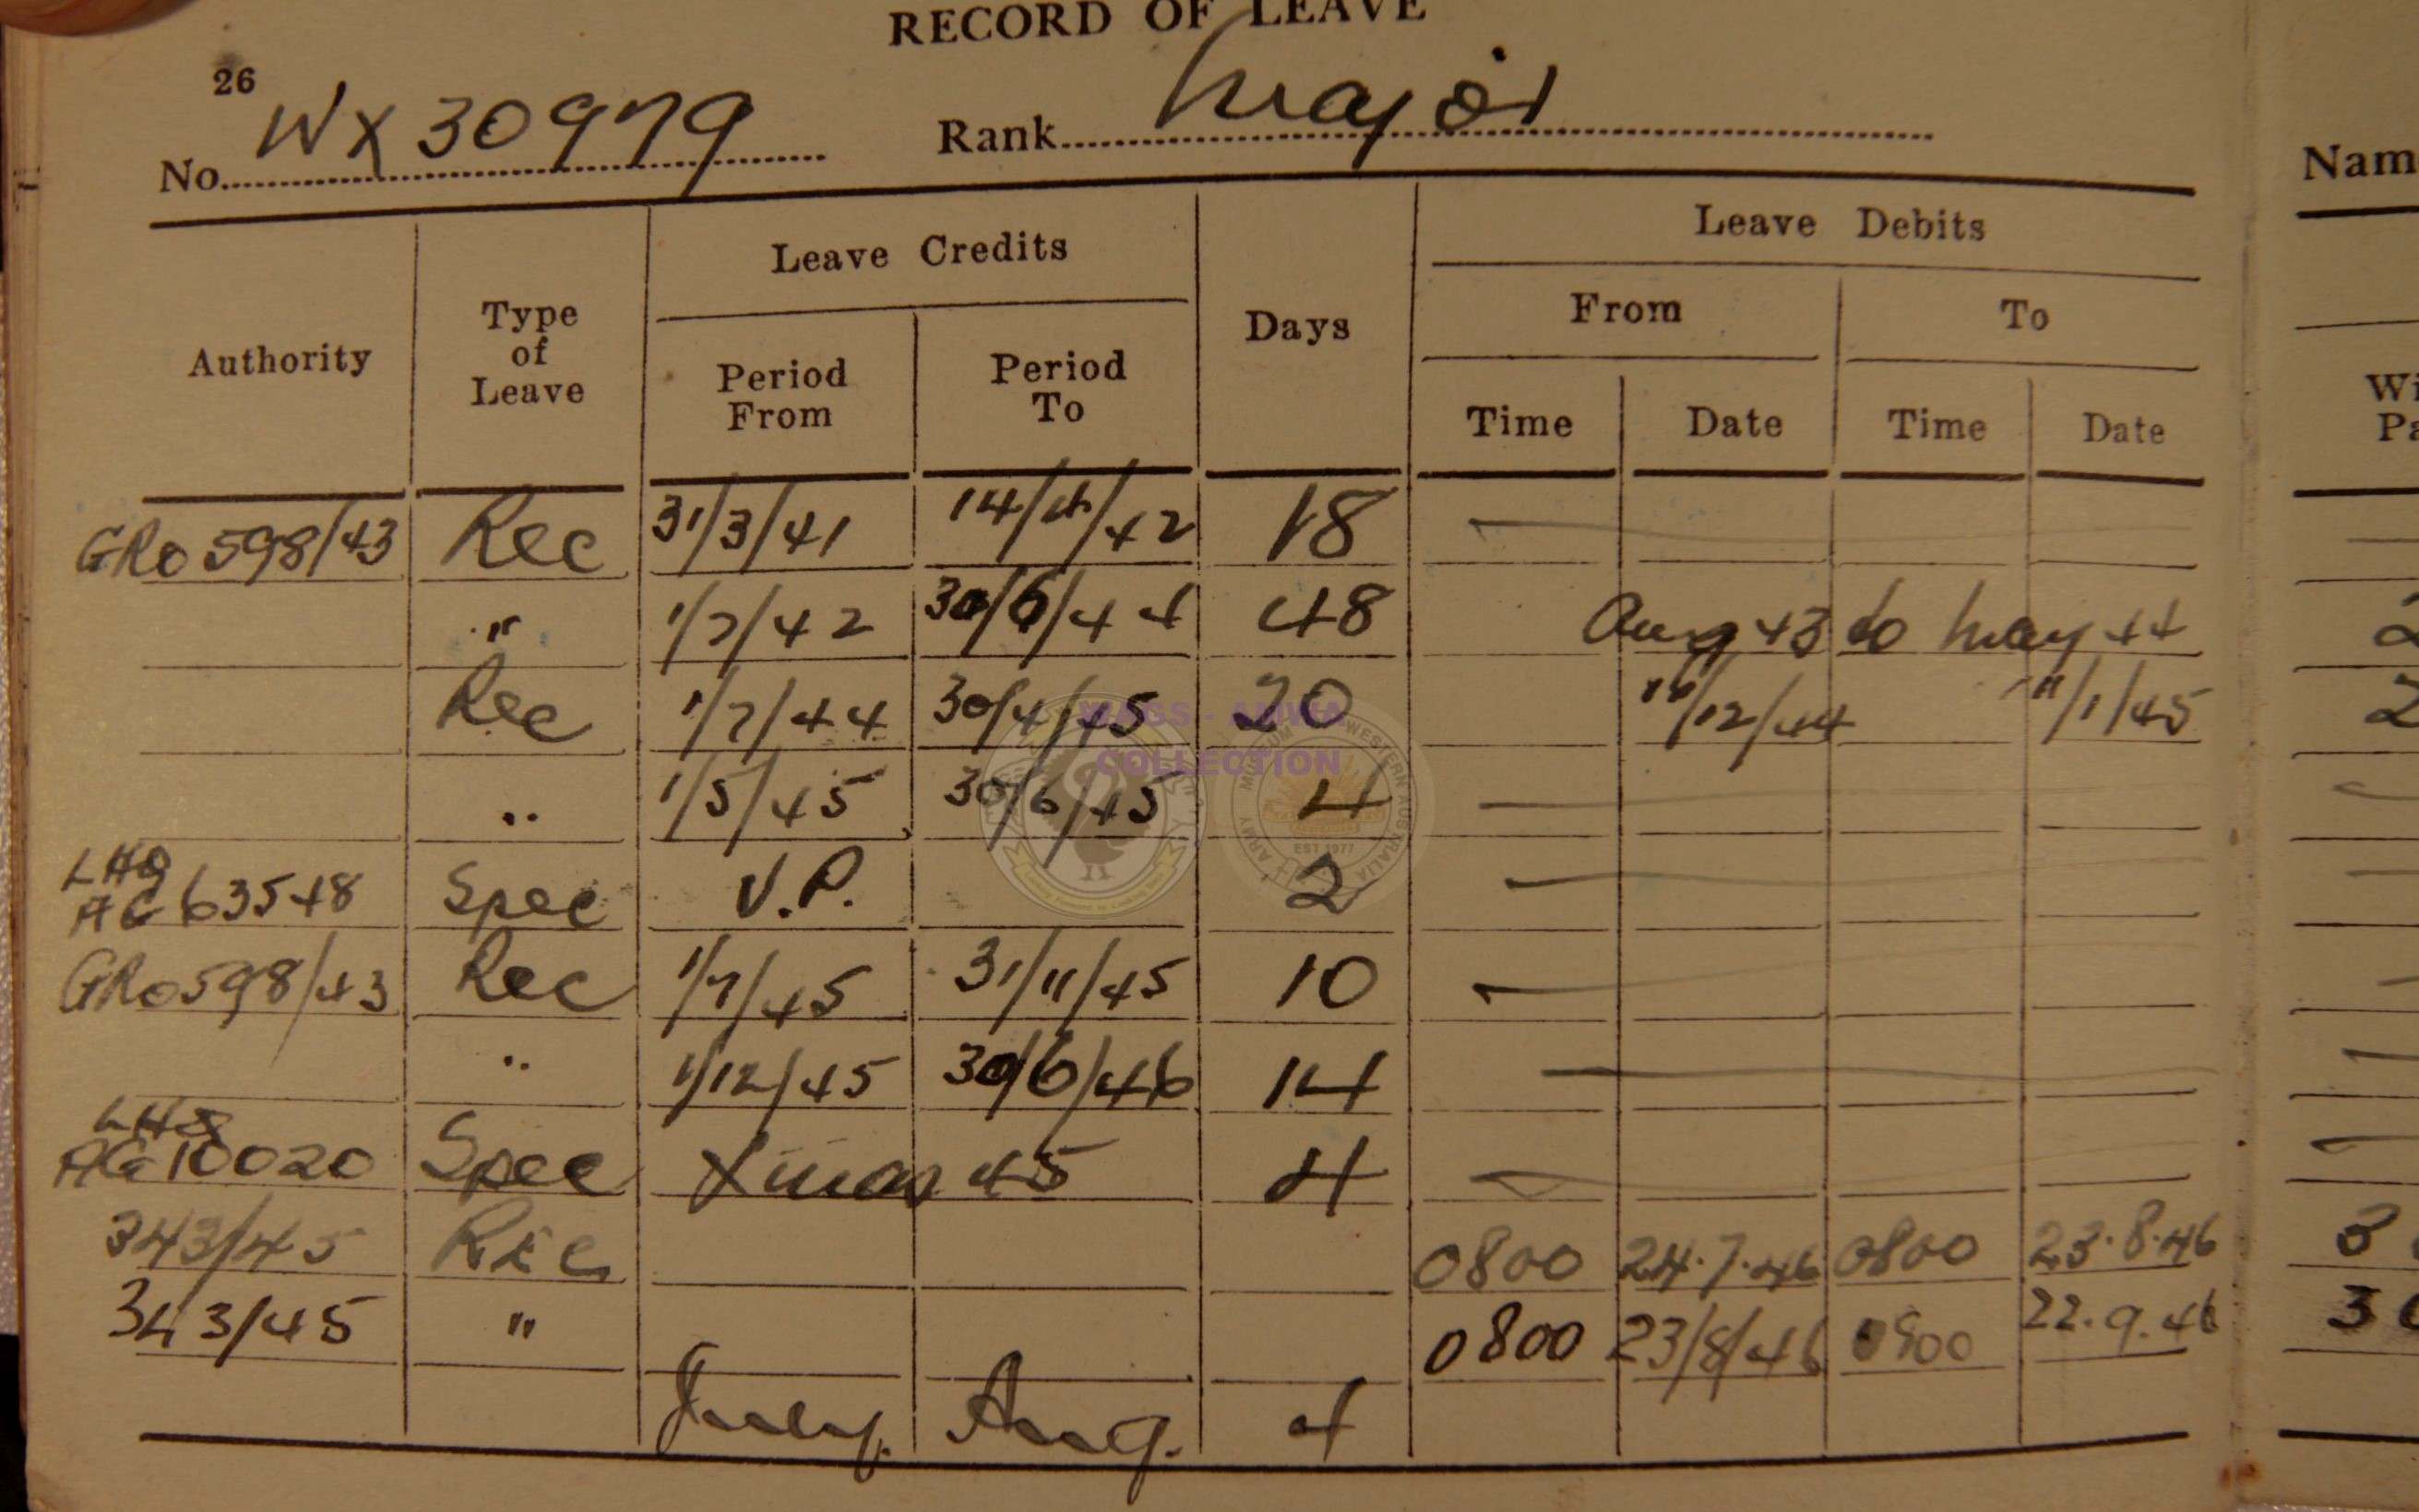 RECORD OF LEAVE
26
No. WX30979 Rank Major
Nam
Leave Credits Leave Debits
Authority Type of Leave Period From Period To Days From To
Time Date Time Date
Wi
Pa
GRO 598/43 Rec 31/3/41 14/4/42 18 —
" 1/7/42 30/6/44 48 Aug 43 to May 44 2
Rec 1/7/44 30/4/45 20 /12/44 11/1/45 2
" 1/5/45 30/6/45 4 —
LHQ
AG 63548 Spec V.P. 2 —
GRO 598/43 Rec 1/7/45 31/11/45 10 —
" 1/12/45 30/6/46 14 —
LHQ
AG 10020 Spec Xmas 45 4 —
343/45 REC 0800 24.7.46 0800 23.8.46 3
343/45 " 0800 23/8/46 0800 22.9.46 30
July. Aug. 4
WAGS - AMWA
COLLECTION
MUSEUM WESTERN AUSTRALIA ARMY
EST 1977